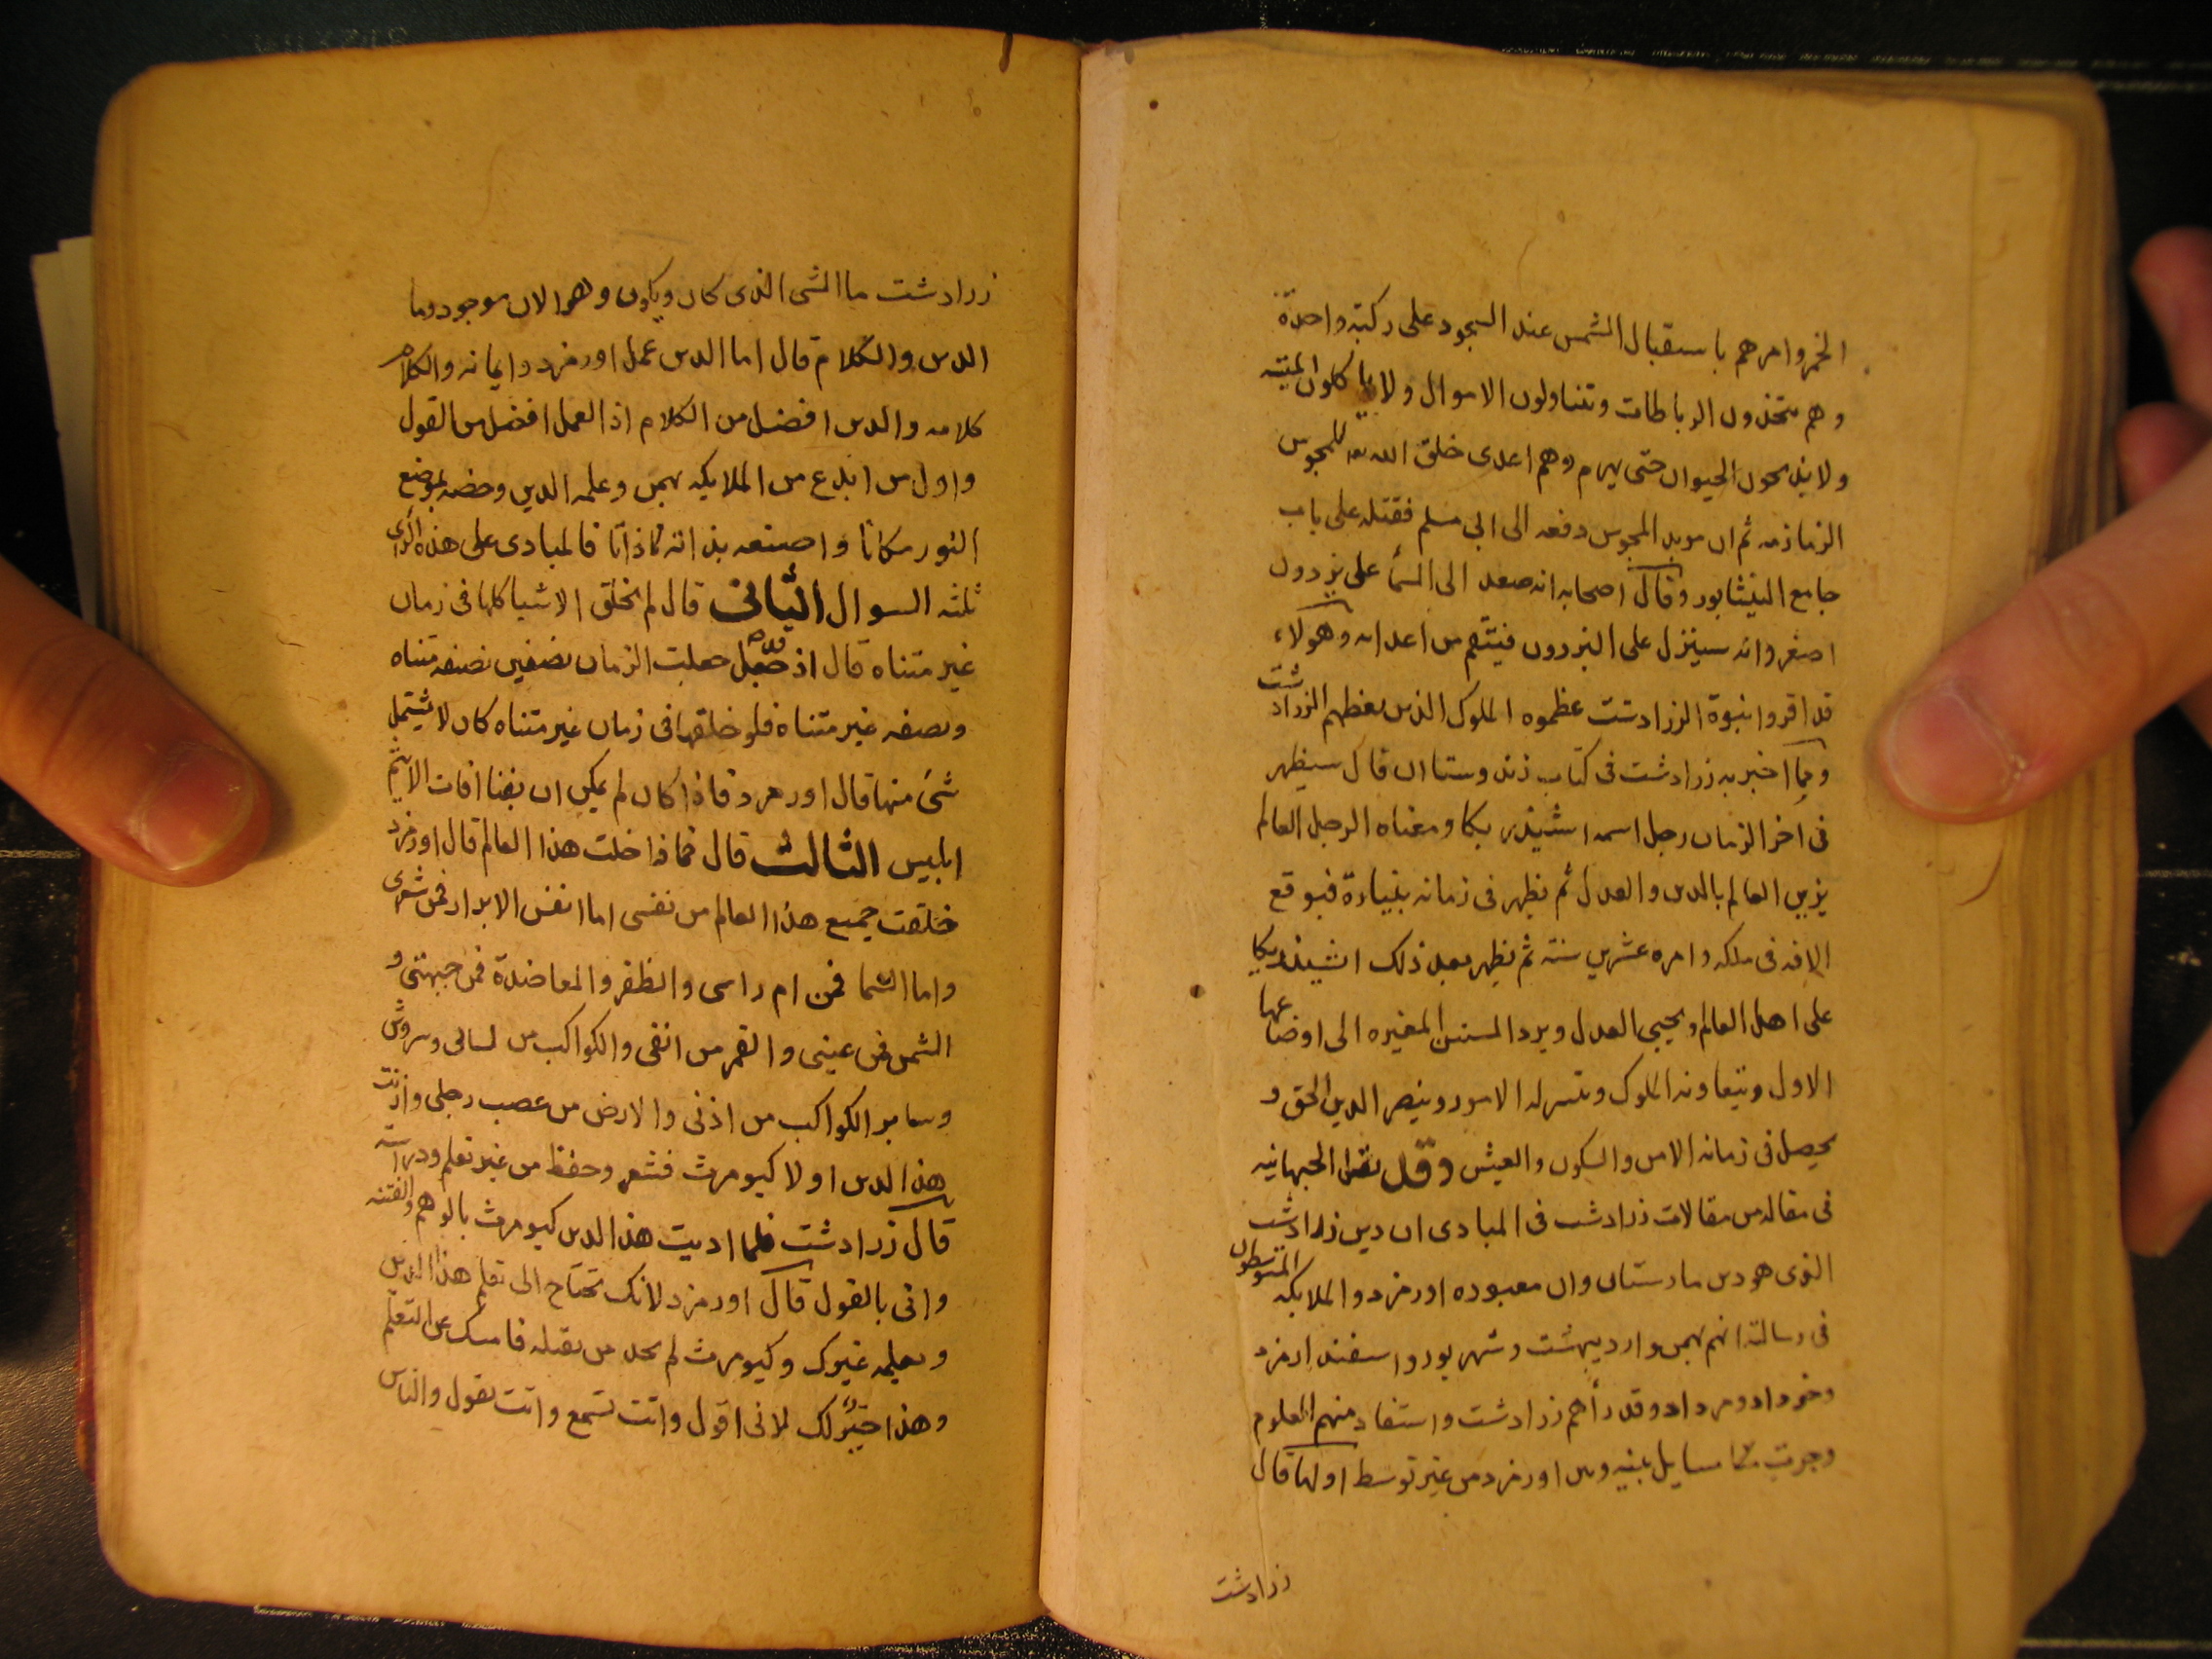 الخمر وامرهم باستقبال الشمس عند السجود على ركبة واحدة
وهم يتخذون الرباطات ويتناولون الاموال ولا ياكلون الميتة
ولا يذبحون الحيوان حتى يهرم وهم اعدى خلق الله للمجوس
الزمازمه ثم ان موبد المجوس دفعه الى ابي مسلم فقتله على باب
جامع النيشابور وقال اصحابه انه صعد الى السما على برذون
اصفر وانه سينزل على البرذون فينتقم من اعدائه وهولاء
قد اقروا بنبوة الزرادشت عظموه الملوك الذين يعظمهم الزرادشت
ومما اخبر به زرادشت في كتاب زند وستا ان قال سيظهر
في اخر الزمان رجل اسمه اشيذريكا ومعناه الرجل العالم
يزين العالم بالدين والعدل ثم يظهر في زمانه بتياره فيوقع
الافه في ملكه وامره عشرين سنة ثم يظهر بعد ذلك اشيذريكا
على اهل العالم ويحيى العدل ويرد السنن المغيره الى اوضاعها
الاول وتيعاونه الملوك وتتيسر له الامور وينصر الدين الحق و
يحصل في زمانه الامن والسكون والعيش وقد نقل الجيهانيه
في مقاله من مقالات زرادشت في المبادى ان دين زرادشت
الذى هو دين مارستان وان معبوده اورمزد والملايكه المتوسطون
في رسالته انهم بهمن وارديبهشت وشهريور واسفندارمزد
وخرداد ومرداد وقد رأهم زرادشت واستفاد منهم العلوم
وجرت مسايل بينه وبين اورمزد من غير توسط اولها قال
زرادشت
زرادشت ما الشى الذى كان ويكون وهو الان موجود وما
الدين والكلام قال اما الدين عمل اورمزد وايمانه والكلام
كلامه والدين افضل من الكلام اذ العمل افضل من القول
واول من ابدع من الملايكه بهمن وعلمه الدين وخصه بموضع
النور مكانا واصنعه بذاته ذاتا فالمبادى على هذه الراى
ثلثه السوال الثانى قال لم يخلق الاشيا كلها في زمان
غير متناه قال اذ جعلت الزمان نصفين نصفه متناه
ونصفه غير متناه فلو خلقتها في زمان غير متناه كان لا يشتمل
شئ منها قال اورمزد فاذا كان لم يمكن ان يفنا افات الاثيم
ابليس الثالث قال فماذا خلقت هذا العالم قال اورمزد
خلقت جميع هذا العالم من نفسى اما انفس الابرار فمن شعرى
واما السما فمن ام راسى والظفر والمعاضدة فمن جبهتى و
الشمس فمن عينى والقمر من انفى والكواكب من لسانى وسروش
وساير الكواكب من اذنى والارض من عصب رجلى واريت
هذا الدين اولا كيومرث فشعر وحفظ من غير تعلم ودراسه
قال زرادشت فلما اديت هذا الدين كيومرث بالوهم
وانى بالقول قال اورمزد لانك تحتاج الى تعلم هذا الدين
وتعليمه غيرك وكيومرث لم يجد من يقبله فامسك عن التعلم
وهذا خير لك لانى اقول وانت تسمع وانت تقول والناس